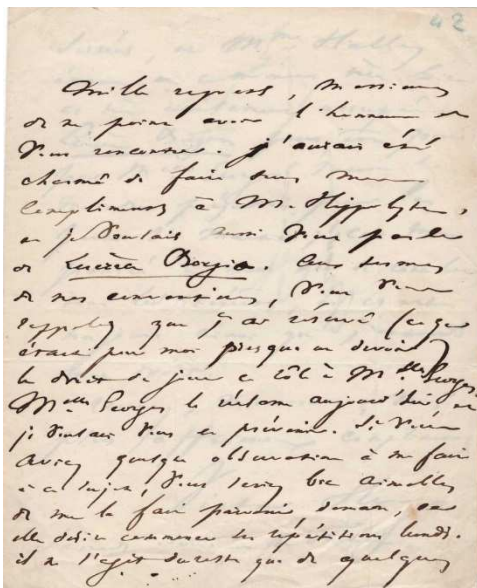 42
Mille regrets, Messieurs
de ne point avoir l'honneur de
vous rencontrer. j'aurais été
charmé de faire tous mes
compliments à M. Hippolyte,
et je voulais aussi vous parler
de Lucrèce Borgia. Aux termes
de nos conventions, vous vous
rappelez que j'ai réservé (ce qui
était pour moi presque un devoir)
le droit de jouer ce rôle à Mlle Georges.
Mlle Georges le réclame aujourd'hui et
je voulais vous en prévenir. Si vous
aviez quelque observation à me faire
à ce sujet, vous seriez bien aimables
de me la faire parvenir demain, car
elle désire commencer les répétitions lundi.
il ne s'agit du reste que de quelques